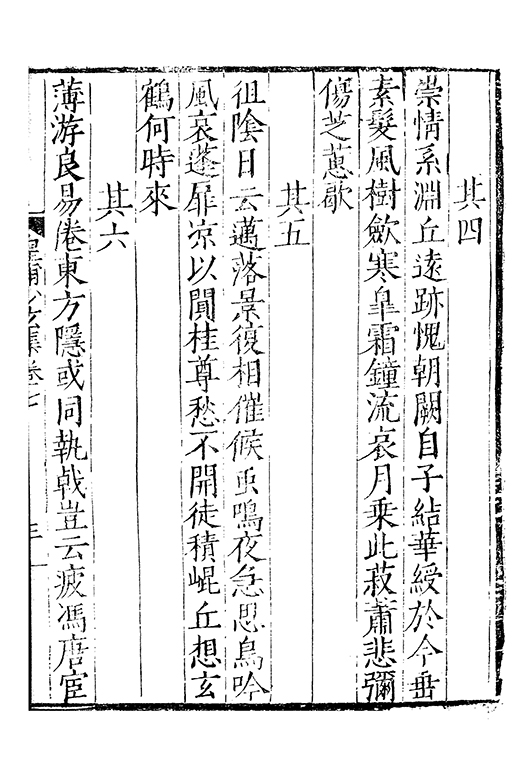 其四
崇情系淵丘遠跡愧朝闕自子結華綬於今垂
素髮風樹歛寒皐霜鐘流哀月乗此菽蕭悲彌
傷芝蕙歇
其五
徂陰日云邁落景復相催候虫鳴夜急思鳥吟
風哀蓬扉凉以閴桂尊愁不開徒積崐丘想玄
鶴何時來
其六
薄游良易倦東方隱或同執戟豈云疲馮唐宦